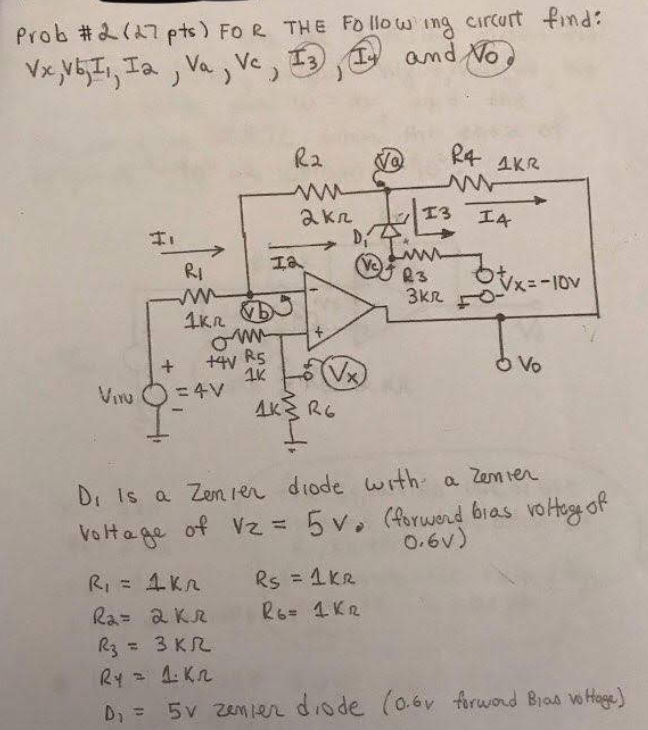 Prob #2 (27 pts) FOR THE Following circuit find:
Vx, Vb, I1, I2, Va, Vc, I3, I4 and Vo.
R2
Va
R4 1KΩ
2KΩ
I3
I4
I1
D1
I2
Vc
R3
3KΩ
+
Vx=-10V
-
R1
1KΩ
Vb
-
+
+4V R5
1K
Vx
Vo
+
Vin = 4V
-
1K R6
D1 Is a Zenier diode with a Zenier
Voltage of Vz = 5V. (forward bias voltage of
0.6V)
R1 = 1KΩ R5 = 1KΩ
R2= 2KΩ R6= 1KΩ
R3 = 3KΩ
R4 = 1KΩ
D1 = 5V zenier diode (0.6v forward Bias voltage)